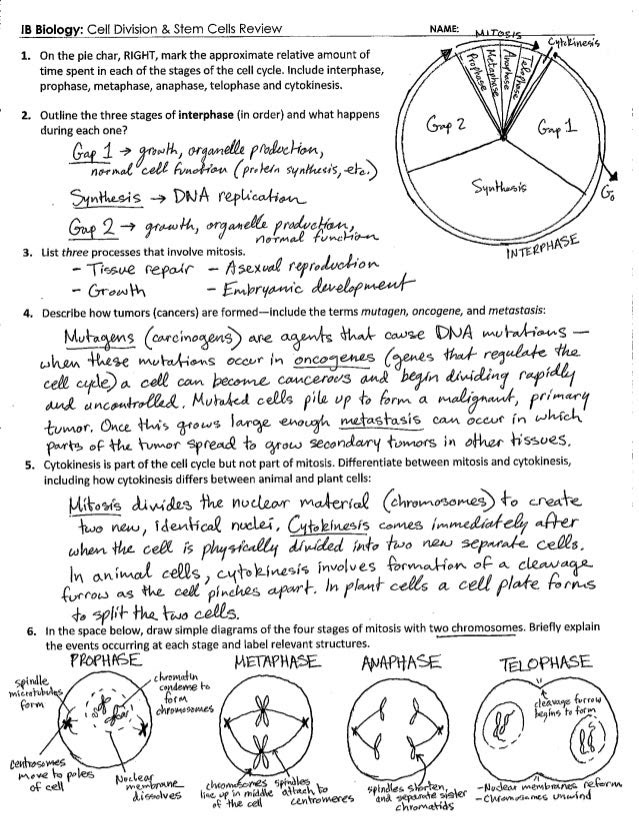 IB Biology: Cell Division & Stem Cells Review
NAME:
1. On the pie char, RIGHT, mark the approximate relative amount of
time spent in each of the stages of the cell cycle. Include interphase,
prophase, metaphase, anaphase, telophase and cytokinesis.
MITOSIS
Cytokinesis
Prophase
Metaphase
Anaphase
Telophase
Gap 2
Gap 1
Synthesis
G₀
INTERPHASE
2. Outline the three stages of interphase (in order) and what happens
during each one?
Gap 1 → growth, organelle production,
normal cell function (protein synthesis, etc.)
Synthesis → DNA replication
Gap 2 → growth, organelle production,
normal function
3. List three processes that involve mitosis.
- Tissue repair - Asexual reproduction
- Growth - Embryonic development
4. Describe how tumors (cancers) are formed—include the terms mutagen, oncogene, and metastasis:
Mutagens (carcinogens) are agents that cause DNA mutations —
when these mutations occur in oncogenes (genes that regulate the
cell cycle) a cell can become cancerous and begin dividing rapidly
and uncontrolled. Mutated cells pile up to form a malignant, primary
tumor. Once this grows large enough metastasis can occur in which
parts of the tumor spread to grow secondary tumors in other tissues.
5. Cytokinesis is part of the cell cycle but not part of mitosis. Differentiate between mitosis and cytokinesis,
including how cytokinesis differs between animal and plant cells:
Mitosis divides the nuclear material (chromosomes) to create
two new, identical nuclei. Cytokinesis comes immediately after
when the cell is physically divided into two new separate cells.
In animal cells, cytokinesis involves formation of a cleavage
furrow as the cell pinches apart. In plant cells a cell plate forms
to split the two cells.
6. In the space below, draw simple diagrams of the four stages of mitosis with two chromosomes. Briefly explain
the events occurring at each stage and label relevant structures.
PROPHASE
spindle
microtubules
form
chromatin
condense to
form
chromosomes
centrosomes
move to poles
of cell
Nuclear
membrane
dissolves
METAPHASE
chromosomes
line up in middle
of the cell
spindles
attach to
centromeres
ANAPHASE
spindles shorten,
and separate sister
chromatids
TELOPHASE
cleavage furrow
begins to form
- Nuclear membranes reform
- Chromosomes unwind